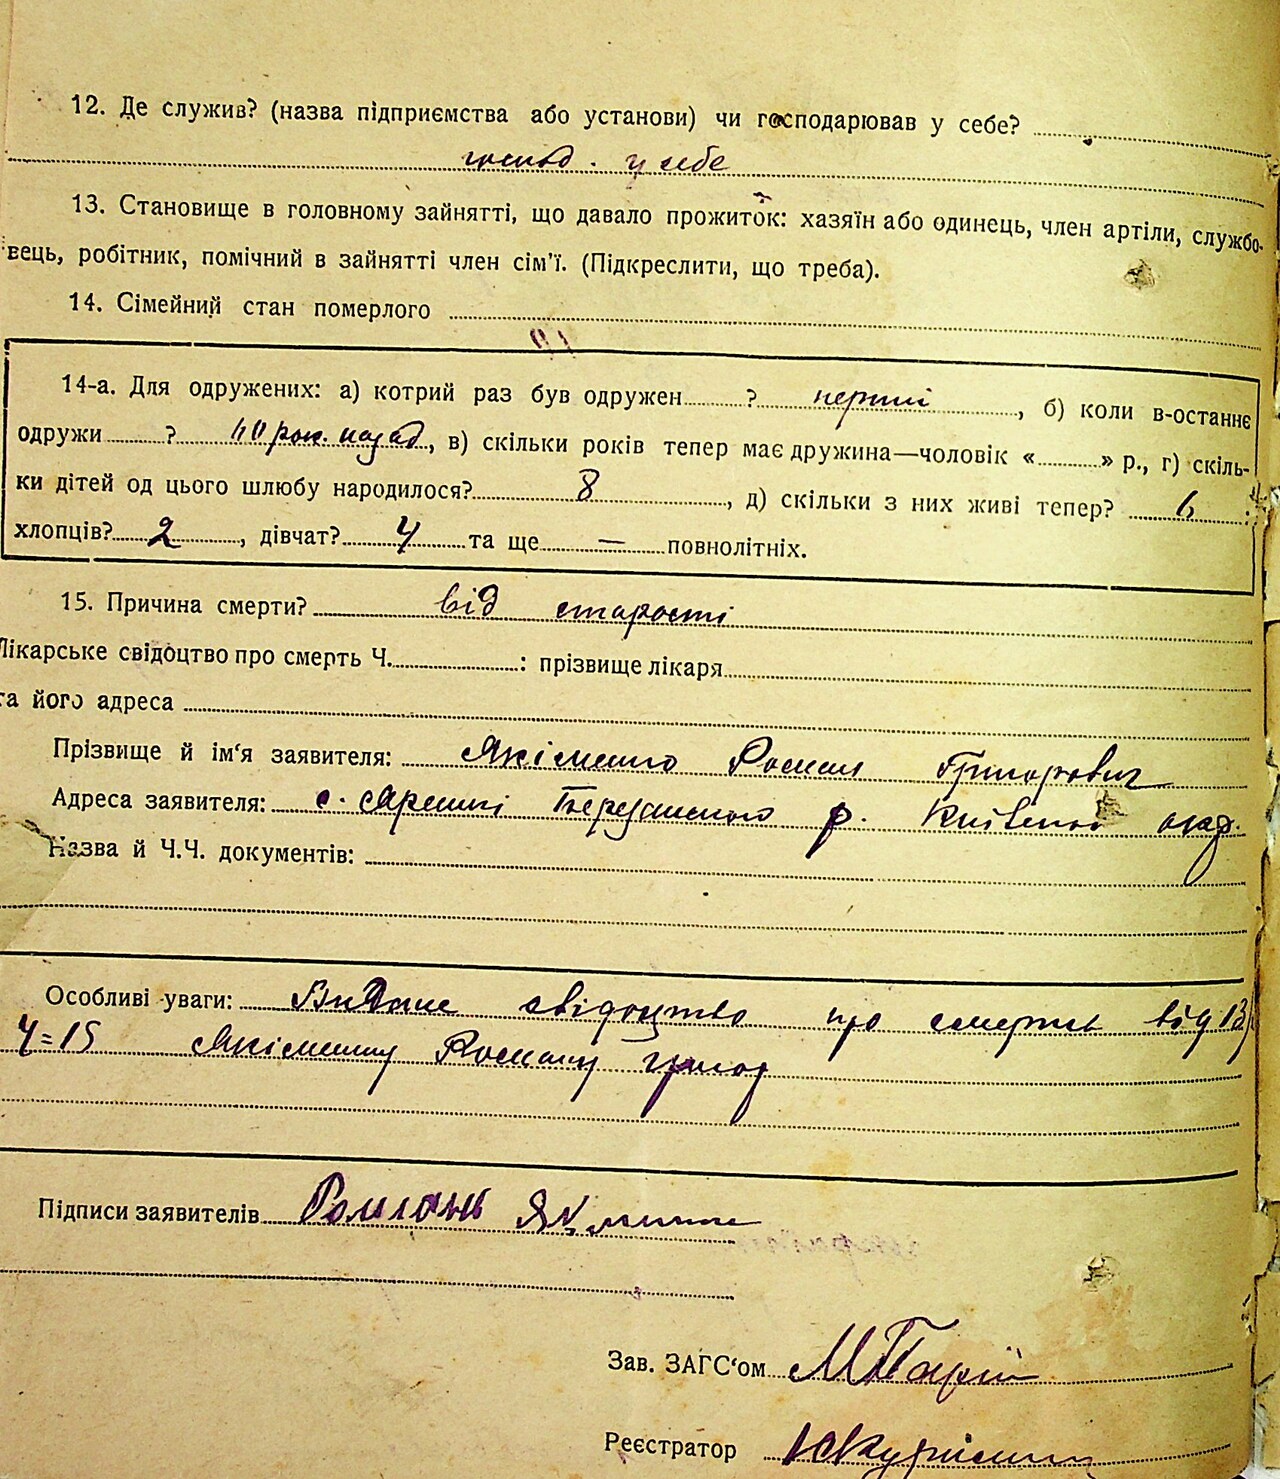 12. Де служив? (назва підприємства або установи) чи господарював у себе?
господ. у себе
13. Становище в головному зайнятті, що давало прожиток: хазяїн або одинець, член артіли, службо-
вець, робітник, помічний в зайнятті член сім'ї. (Підкреслити, що треба).
14. Сімейний стан померлого
14-а. Для одружених: а) котрий раз був одружен ? перший, б) коли в-останнє
одружи ? 40 рок. назад, в) скільки років тепер має дружина—чоловік « » р., г) скіль-
ки дітей од цього шлюбу народилося? 8, д) скільки з них живі тепер? 6:
хлопців? 2, дівчат? 4 та ще — повнолітніх.
15. Причина смерти? від старості
Лікарське свідоцтво про смерть Ч. : прізвище лікаря
та його адреса
Прізвище й ім'я заявителя: Якіменко Роман Григорович
Адреса заявителя: с. Ярешки р. Київської окр.
Назва й Ч.Ч. документів:
Особливі уваги: Видане свідоцтво про смерть від 13/
Ч=15 Якіменку Роману Григор
Підписи заявителів Романь
Зав. ЗАГС'ом
Реєстратор